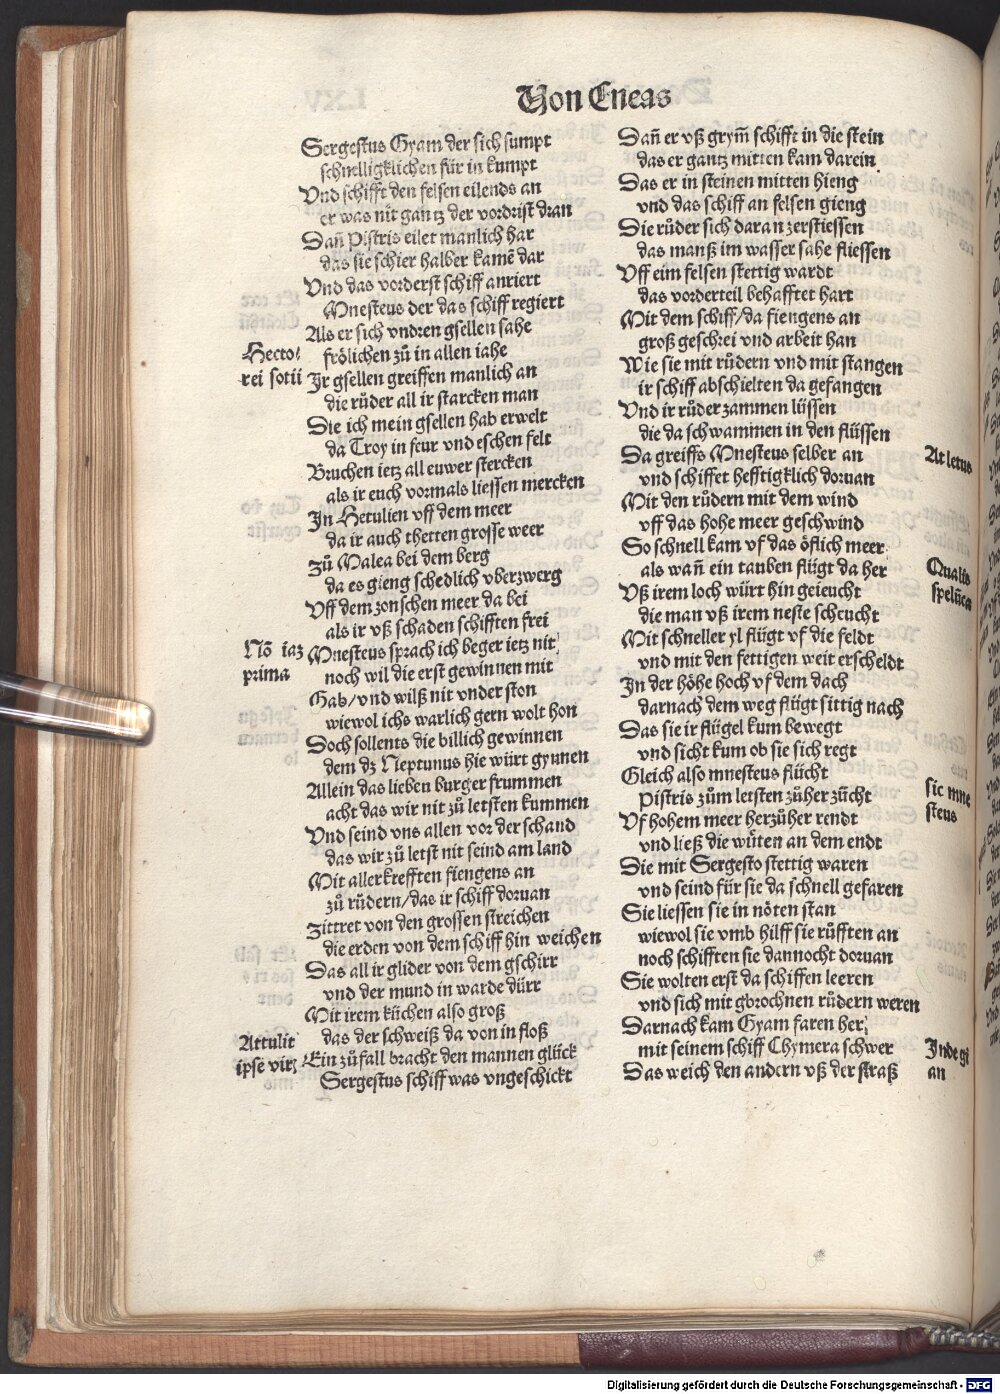 Von Eneas
Sergestus Gyam der sich sumpt
schnelligklichen für in kumpt
Vnd schifft den felsen eilends an
er was nit gantz der vordrist dran
Dañ Pistris eilet manlich har
das sie schier halber kamē dar
Vnd das vorderst schiff anriert
Mnesteus der das schiff regiert
Als er sich vndren gsellen sahe
Hecto⸗
frölichen zů in allen iahe
rei sotii
Jr gsellen greiffen manlich an
die růder all ir starcken man
Die ich mein gsellen hab erwelt
da Troy in feur vnd eschen felt
Bruchen ietz all euwer stercken
als ir euch vormals liessen mercken
Jn Getulien vff dem meer
da ir auch thetten grosse weer
Zů Malea bei dem berg
da es gieng schedlich vberzwerg
Vff dem zonschen meer da bei
als ir vß schaden schifften frei
Nō iaz
Mnesteus sprach ich beger ietz nit
prima
noch wil die erst gewinnen mit
Hab/vnd wilß nit vnder ston
wiewol ichs warlich gern wolt hon
Doch sollents die billich gewinnen
dem dz Neptunus hie würt gynnen
Allein das lieben burger frummen
acht das wir nit zů letsten kummen
Vnd seind vns allen vor der schand
das wir zů letst nit seind am land
Mit aller krefften fiengens an
zů růdern/das ir schiff doruan
Zittret von den grossen streichen
die erden von dem schiff hin weichen
Das all ir glider von dem gschirr
vnd der mund in warde dürr
Mit irem küchen also groß
Attulit
das der schweiß da von in floß
ipse vir⸗
Ein zůfall bracht den mannen glück
Sergestus schiff was vngeschickt
Dañ er vß grym̄ schifft in die stein
das er gantz mitten kam darein
Das er in steinen mitten hieng
vnd das schiff an felsen gieng
Die růder sich daran zerstiessen
das manß im wasser sahe fliessen
Vff eim felsen stettig wardt
das vorderteil behafftet hart
Mit dem schiff/da fiengens an
groß geschrei vnd arbeit han
Wie sie mit růdern vnd mit stangen
ir schiff abschielten da gefangen
Vnd ir růder zammen lüssen
die da schwammen in den flüssen
Da greiffs Mnesteus selber an
At letus
vnd schiffet hefftigklich doruan
Mit den růdern mit dem wind
vff das hohe meer geschwind
So schnell kam vf das öflich meer
als wañ ein tauben flügt da her
Qualis
Vß irem loch würt hin geieucht
spelūca
die man vß irem neste scheucht
Mit schneller yl flügt vf die feldt
vnd mit den fettigen weit erscheldt
Jn der höhe hoch vf dem dach
darnach dem weg flügt sittig nach
Das sie ir flügel kum bewegt
vnd sicht kum ob sie sich regt
Gleich also mnesteus flücht
sic mne
Pistris zům letsten zůher zücht
steus
Vf hohem meer herzůher rendt
vnd ließ die wüten an dem endt
Die mit Sergesto stettig waren
vnd seind für sie da schnell gefaren
Sie liessen sie in nöten stan
wiewol sie vmb hilff sie růfften an
noch schifften sie dannocht doruan
Sie wolten erst da schiffen leeren
vnd sich mit gbrochnen růdern weren
Darnach kam Gyam faren her
mit seinem schiff Chymera schwer
Jnde gi
Das weich den andern vß der straß
an
Digitalisierung gefördert durch die Deutsche Forschungsgemeinschaft - DFG